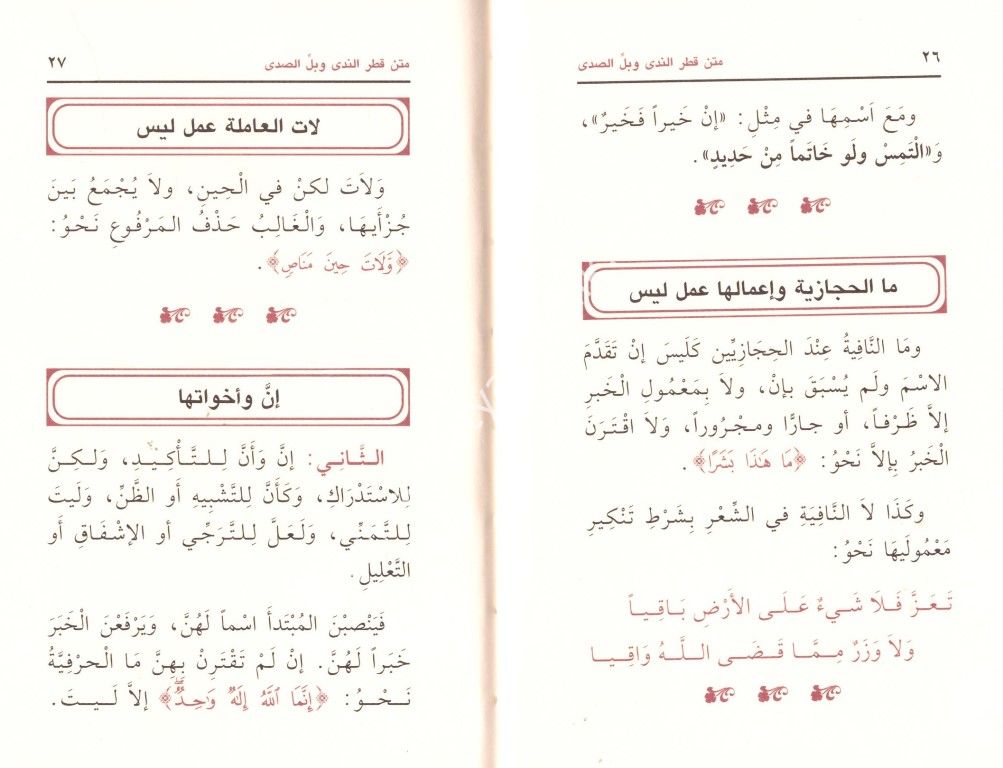 ٢٦
متن قطر الندى وبلّ الصدى
ومَعَ اَسْمِهَا في مِثْلِ: «إنْ خَيراً فَخَيرٌ»،
وَ«الْتَمِسْ ولَو خَاتَماً مِنْ حَدِيدٍ».
ما الحجازية وإعمالها عمل ليس
ومَا النَّافِيةُ عِنْدَ الحِجَازِيِّين كَلَيسَ إنْ تَقَدَّمَ
الاسْمَ ولَم يُسْبَقَ بإنْ، ولاَ بِمَعْمُولِ الْخَبرِ
إلاَّ ظَرْفاً، أو جارًّا ومجْرُوراً، وَلاَ اقْتَرَنَ
الْخَبرُ بِإلاَّ نَحْوُ: ﴿مَا هَٰذَا بَشَرًا﴾.
وكَذَا لاَ النَّافيَةِ في الشِّعْرِ بِشَرْطِ تَنْكِيرِ
مَعْمُولَيهَا نَحْوُ:
تَعَزَّ فَلاَ شَيءٌ عَلَى الأَرْضِ بَاقِياً
وَلاَ وَزَرٌ مِمَّا قَضَى اللَّهُ وَاقِيا
متن قطر الندى وبلّ الصدى
٢٧
لات العاملة عمل ليس
وَلاَتَ لكنْ في الْحِينِ، ولاَ يُجْمَعُ بَينَ
جُزْأَيهَا، وَالْغَالِبُ حَذْفُ المَرْفُوعِ نَحْوُ:
﴿وَّلَاتَ حِينَ مَنَاصٍ﴾.
إنَّ وأخواتها
الثَّانِي: إنَّ وَأَنَّ لِلتَّأْكِيدِ، وَلكِنَّ
لِلاسْتَدْرَاكِ، وَكَأَنَّ لِلتَّشْبِيهِ أَو الظَّنِّ، وَلَيتَ
لِلتَّمَنِّي، وَلَعَلَّ لِلتَّرَجِّي أو الإشْفَاقِ أَو
التَّعْلِيلِ.
فَيَنْصِبْنَ المُبْتَدأَ اسْماً لَهُنَّ، وَيَرْفَعْنَ الْخَبَرَ
خَبَراً لَهُنَّ. إنْ لَمْ تَقْتَرِنْ بِهِنَّ مَا الْحَرْفيَّةُ
نَحْوُ: ﴿إِنَّمَا ٱللَّهُ إِلَٰهٌ وَٰحِدٌۖ﴾ إلاَّ لَيتَ.